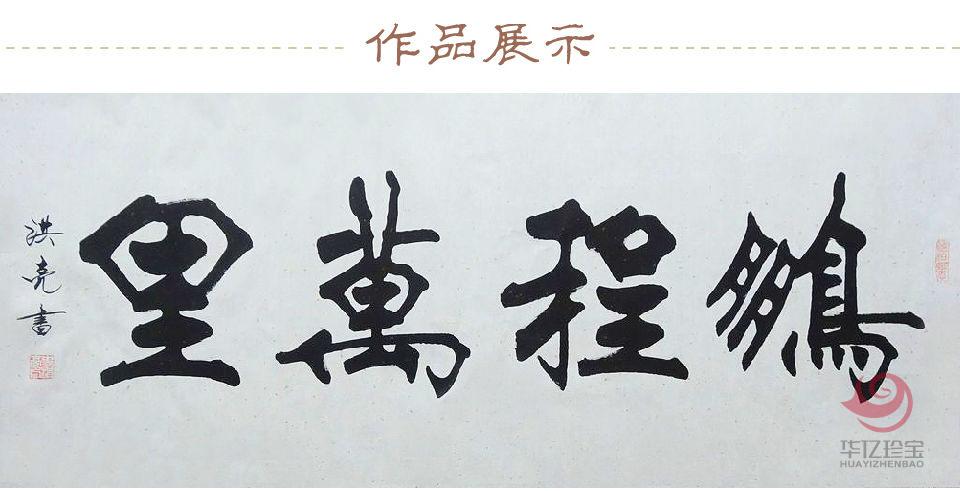 作品展示
鵬程萬里
洪亮書
华亿珍宝
HUAYIZHENBAO